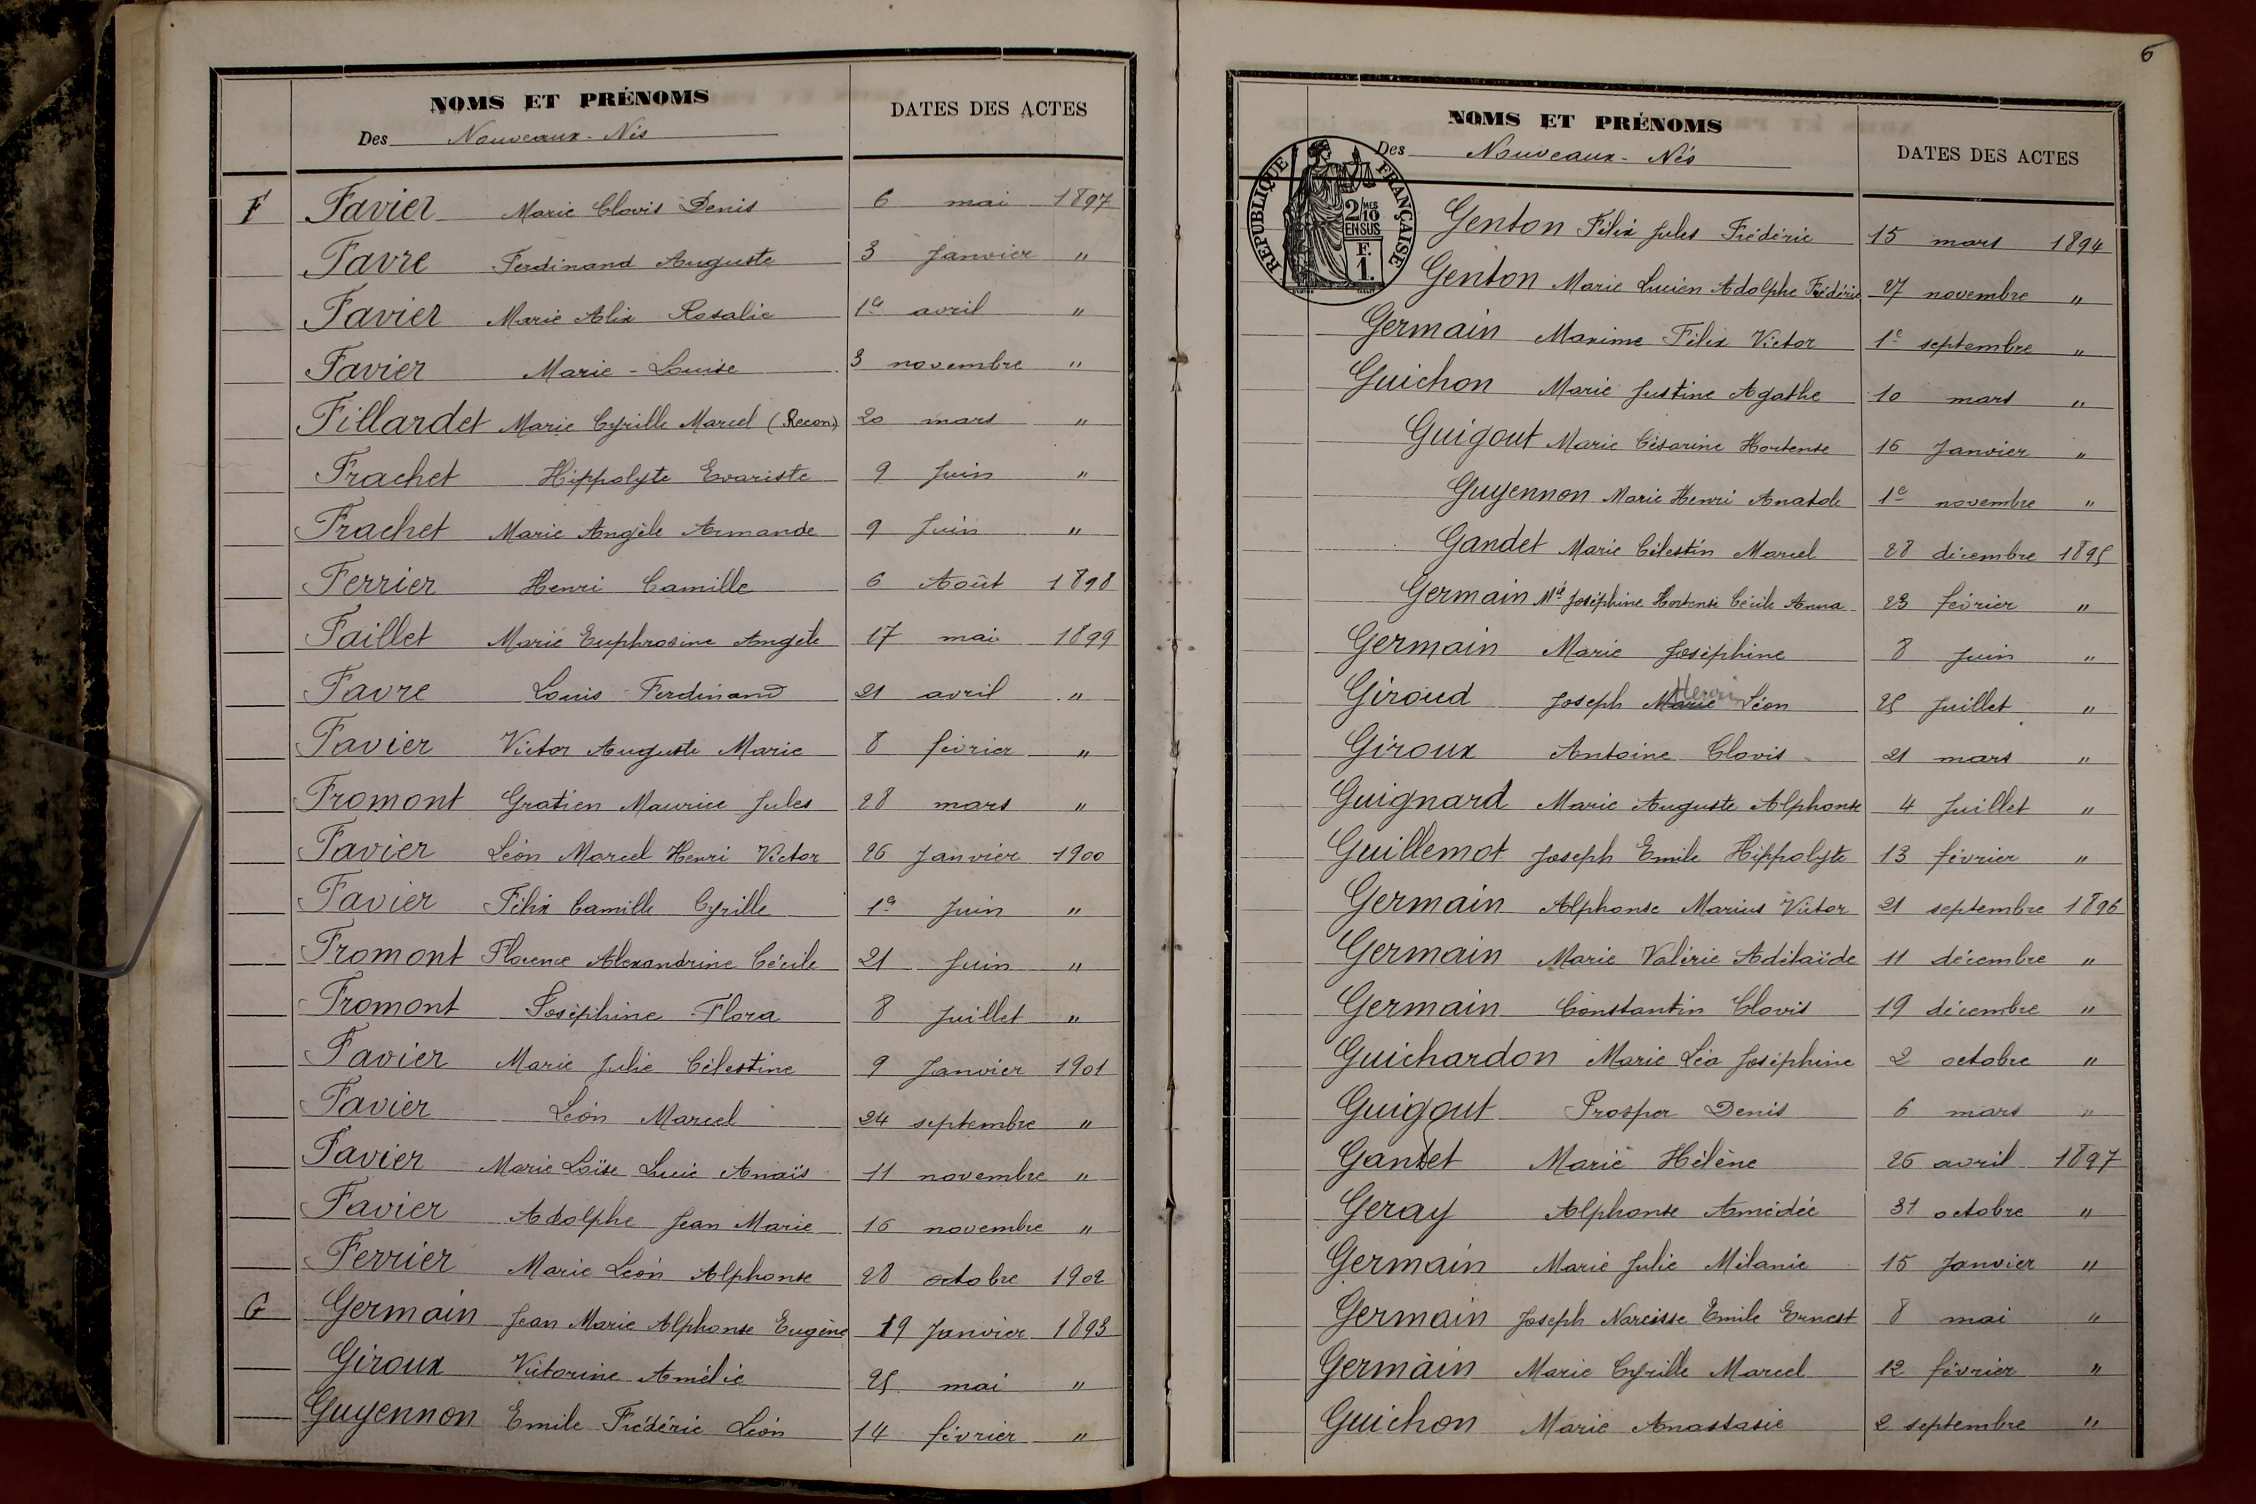 NOMS ET PRÉNOMS
Des Nouveaux-Nés
DATES DES ACTES
F Favier Marie Clovis Denis 6 mai 1897
Favre Ferdinand Auguste 3 Janvier "
Favier Marie Alix Rosalie 1er avril "
Favier Marie-Louise 3 novembre "
Fillardet Marie Cyrille Marcel (Recon) 20 mars "
Frachet Hippolyte Evariste 9 Juin "
Frachet Marie Angèle Armande 9 Juin "
Ferrier Henri Camille 6 Août 1898
Faillet Marie Euphrosine Angèle 17 mai 1899
Favre Louis Ferdinand 21 avril "
Favier Victor Auguste Marie 8 février "
Fromont Gratien Maurice Jules 28 mars "
Favier Léon Marcel Henri Victor 26 Janvier 1900
Favier Félix Camille Cyrille 1er Juin "
Fromont Florence Alexandrine Cécile 21 Juin "
Fromont Joséphine Flora 8 Juillet "
Favier Marie Julie Célestine 9 Janvier 1901
Favier Léon Marcel 24 septembre "
Favier Marie Loïse Lucie Anaïs 11 novembre "
Favier Adolphe Jean Marie 16 novembre "
Ferrier Marie Léon Alphonse 28 octobre 1902
G Germain Jean Marie Alphonse Eugène 19 Janvier 1893
Giroux Victorine Amélie 25 mai "
Guyennon Emile Frédéric Léon 14 février "
6
NOMS ET PRÉNOMS
Des Nouveaux-Nés
DATES DES ACTES
RÉPUBLIQUE FRANÇAISE
2/10 MES
EN SUS
F.
1.
Genton Félix Jules Frédéric 15 mars 1894
Genton Marie Lucien Adolphe Frédéric 27 novembre "
Germain Maxime Félix Victor 1e septembre "
Guichon Marie Justine Agathe 10 mars "
Guigout Marie Césarine Hortense 16 Janvier "
Guyennon Marie Henri Anatole 1e novembre "
Gandet Marie Célestin Marcel 28 décembre 1895
Germain Mie Joséphine Hortense Cécile Anna 23 février "
Germain Marie Joséphine 8 Juin "
Giroud Joseph Marie Henri Léon 25 Juillet "
Giroux Antoine Clovis 21 mars "
Guignard Marie Auguste Alphonse 4 Juillet "
Guillemot Joseph Emile Hippolyte 13 février "
Germain Alphonse Marius Victor 21 septembre 1896
Germain Marie Valérie Adélaïde 11 décembre "
Germain Constantin Clovis 19 décembre "
Guichardon Marie Léa Joséphine 2 octobre "
Guigout Prosper Denis 6 mars "
Gandet Marie Hélène 26 avril 1897
Geray Alphonse Amédée 31 octobre "
Germain Marie Julie Mélanie 15 Janvier "
Germain Joseph Narcisse Emile Ernest 8 mai "
Germain Marie Cyrille Marcel 12 février "
Guichon Marie Anastasie 2 septembre "